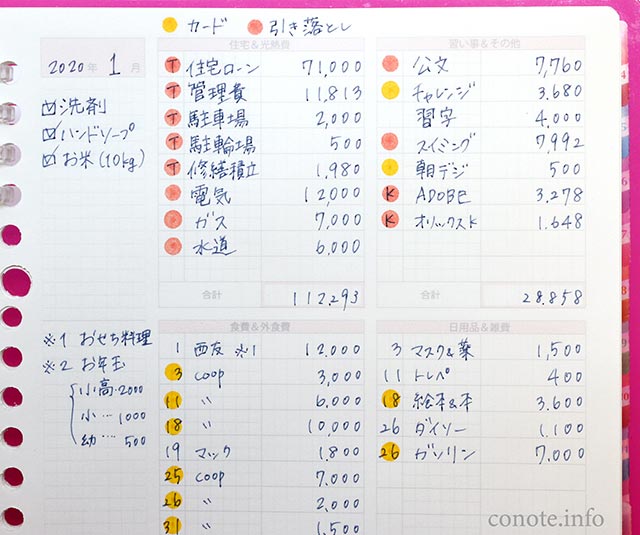 カード 引き落とし
2020年 1月
☑洗剤
☑ハンドソープ
☑お米(10kg)
住宅&光熱費
T 住宅ローン 71,000
T 管理費 11,813
T 駐車場 2,000
T 駐輪場 500
T 修繕積立 1,980
電気 12,000
ガス 7,000
水道 6,000
合計 112,293
習い事&その他
公文 7,760
チャレンジ 3,680
習字 4,000
スイミング 7,992
朝日デジ 500
K ADOBE 3,278
K オリックスK 1,648
合計 28,858
※1 おせち料理
※2 お年玉
小高‥2000
小… 1000
幼… 500
食費&外食費
1 西友 ※1 12,000
3 coop 3,000
11 〃 6,000
18 〃 10,000
19 マック 1,800
25 coop 7,000
26 〃 2,000
31 〃 1,500
日用品&雑費
3 マスク&薬 1,500
11 トレペ 400
18 絵本&本 3,600
26 ダイソー 1,100
26 ガソリン 7,000
conote.info